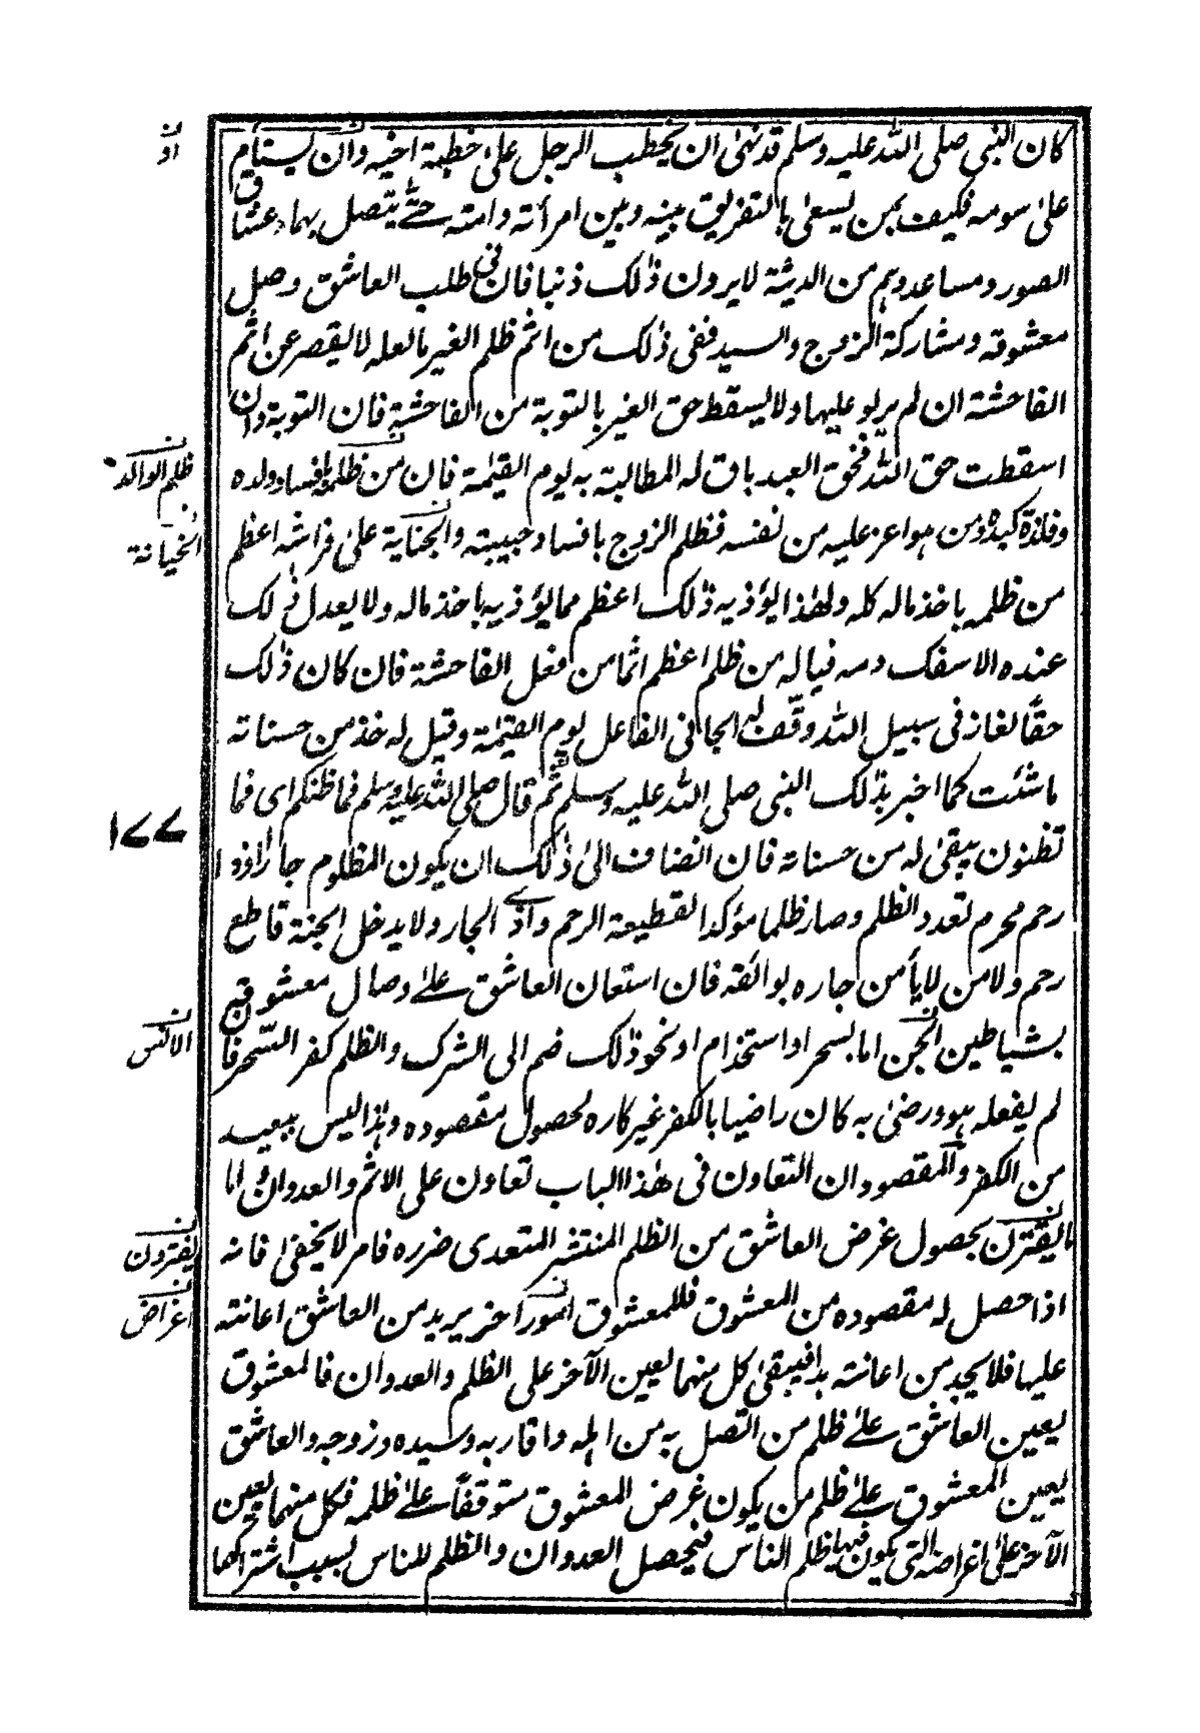 كان النبي صلى الله عليه وسلم قد نهى ان يخطب الرجل على خطبة اخيه وان يستام
على سومه فكيف بمن يسعى بالتفريق بينه وبين امرأته وامته حتى يتصل بهما وعشاق
الصور ومساعدوهم من الديثة لا يرون ذلك ذنبا فان في طلب العاشق وصل
معشوقه ومشاركة الزوج والسيد ففي ذلك من اثم ظلم الغير مالعله لا يقصر عن اثم
الفاحشة ان لم يربو عليها ولا يسقط حق الغير بالتوبة من الفاحشة فان التوبة وان
اسقطت حق الله فحق العبد باق له المطالبة به يوم القيمة فان من ظلم بافساد ولده
وفلذة كبده ومن هو اعز عليه من نفسه فظلم الزوج بافساد حبيبته والجناية على فراشه اعظم
من ظلمه باخذ ماله كله ولهذا يؤذيه ذلك اعظم مما يؤذيه باخذ ماله ولا يعدل ذلك
عنده الا سفك دمه فيا له من ظلم اعظم اثما من فعل الفاحشة فان كان ذلك
حقا لغاز في سبيل الله وقف له الجاني الفاعل يوم القيمة وقيل له خذ من حسناته
ما شئت كما اخبر بذلك النبي صلى الله عليه وسلم ثم قال صلى الله عليه وسلم فما ظنكم اي فما
تظنون يبقى له من حسناته فان انضاف الى ذلك ان يكون المظلوم جارا او ذا
رحم محرم تعدد الظلم وصار ظلما مؤكدا لقطيعة الرحم واذى الجار ولا يدخل الجنة قاطع
رحم ولا من لا يأمن جاره بوائقه فان استعان العاشق على وصال معشوقه
بشياطين الجن اما بسحر او استخدام او نحو ذلك ضم الى الشرك والظلم كفر السحر فان
لم يفعله هو ورضي به كان راضيا بالكفر غير كاره لحصول مقصوده وهذا ليس ببعيد
من الكفر والمقصود ان التعاون في هذا الباب تعاون على الاثم والعدوان واما
ما يقترن بحصول غرض العاشق من الظلم المنتشر المتعدي ضرره فامر لا يخفى فانه
اذا حصل له مقصوده من المعشوق فللمعشوق امور اخر يريد من العاشق اعانته
عليها فلا يجد من اعانته بدا فيبقى كل منهما يعين الآخر على الظلم والعدوان فالمعشوق
يعين العاشق على ظلم من اتصل به من اهله واقاربه وسيده وزوجه والعاشق
يعين المعشوق على ظلم من يكون غرض المعشوق متوقفا على ظلمه فكل منهما يعين
الآخر على اغراضه التي يكون فيها ظلم الناس فيحصل العدوان والظلم للناس بسبب اشتراكهما
او
ظلم الوالد
الخيانة
١٧٧
الانس
يقترون
اغراض